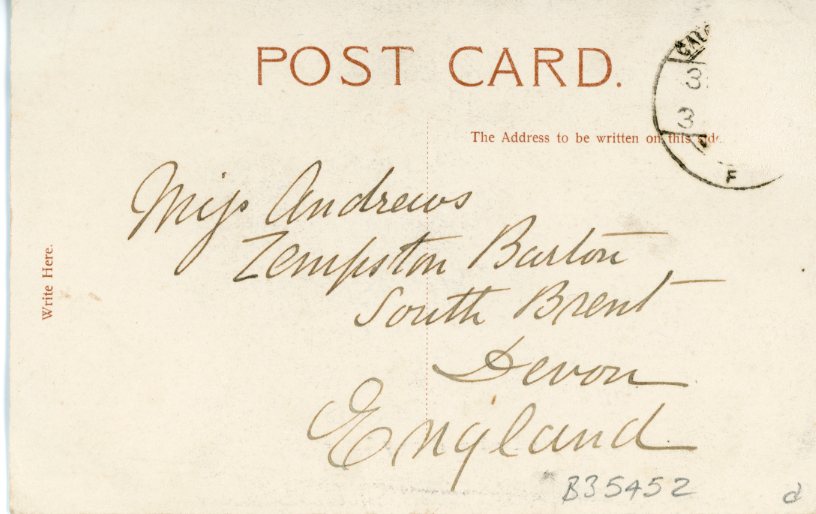 POST CARD.
The Address to be written on this side
Miss Andrews
Zempston Barton
South Brent
Devon
England
Write Here.
3
3
F
B35452
d